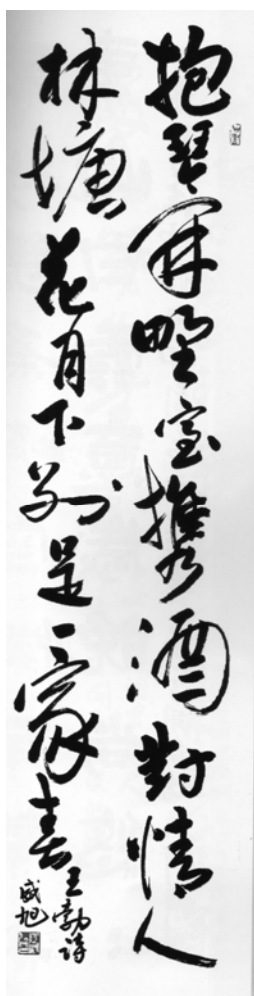 抱琴開野室攜酒對情人
林塘花月下別是一家春
王勃詩